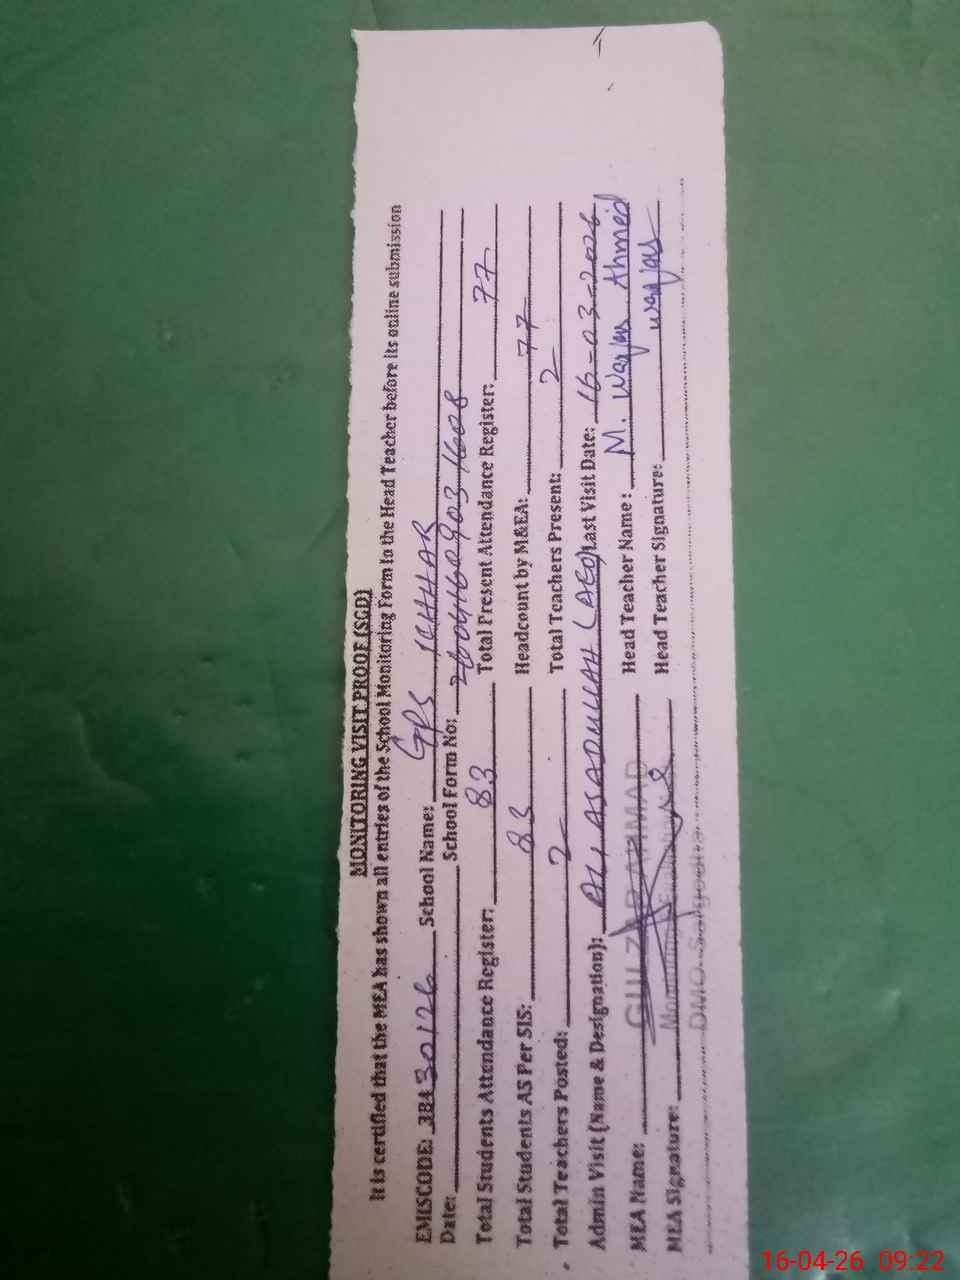 MONITORING VISIT PROOF (SGD)
It is certified that the MEA has shown all entries of the School Monitoring Form to the Head Teacher before its online submission
EMISCODE: 38430126 School Name: GPS ICHHAR
Date: School Form No: 26041609031608
Total Students Attendance Register: 83 Total Present Attendance Register: 77
Total Students AS Per SIS: 83 Headcount by M&EA: 77
Total Teachers Posted: 2 Total Teachers Present: 2
Admin Visit (Name & Designation): ALI ASADULLAH (AEO) Last Visit Date: 16-03-2026
MEA Name: GULZAR AHMAD Head Teacher Name: M. Waqas Ahmed
MEA Signature: Monitoring Head Teacher Signature: Waqas
DMO Sargodha
16-04-26 09:22